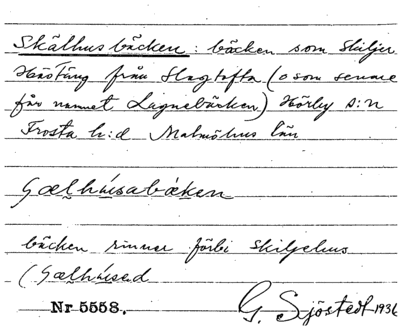 Skälhusbäcken: bäcken som skiljer
Häggäng från Slagtofta (o som senare
får namnet Lagnebäcken) Hörby s:n
Frosta h:d Malmöhus län
Gælhúsabækən
bäcken rinner förbi skiljehus
(Gælhúsəd
Nr 5558. G. Sjöstedt 1936